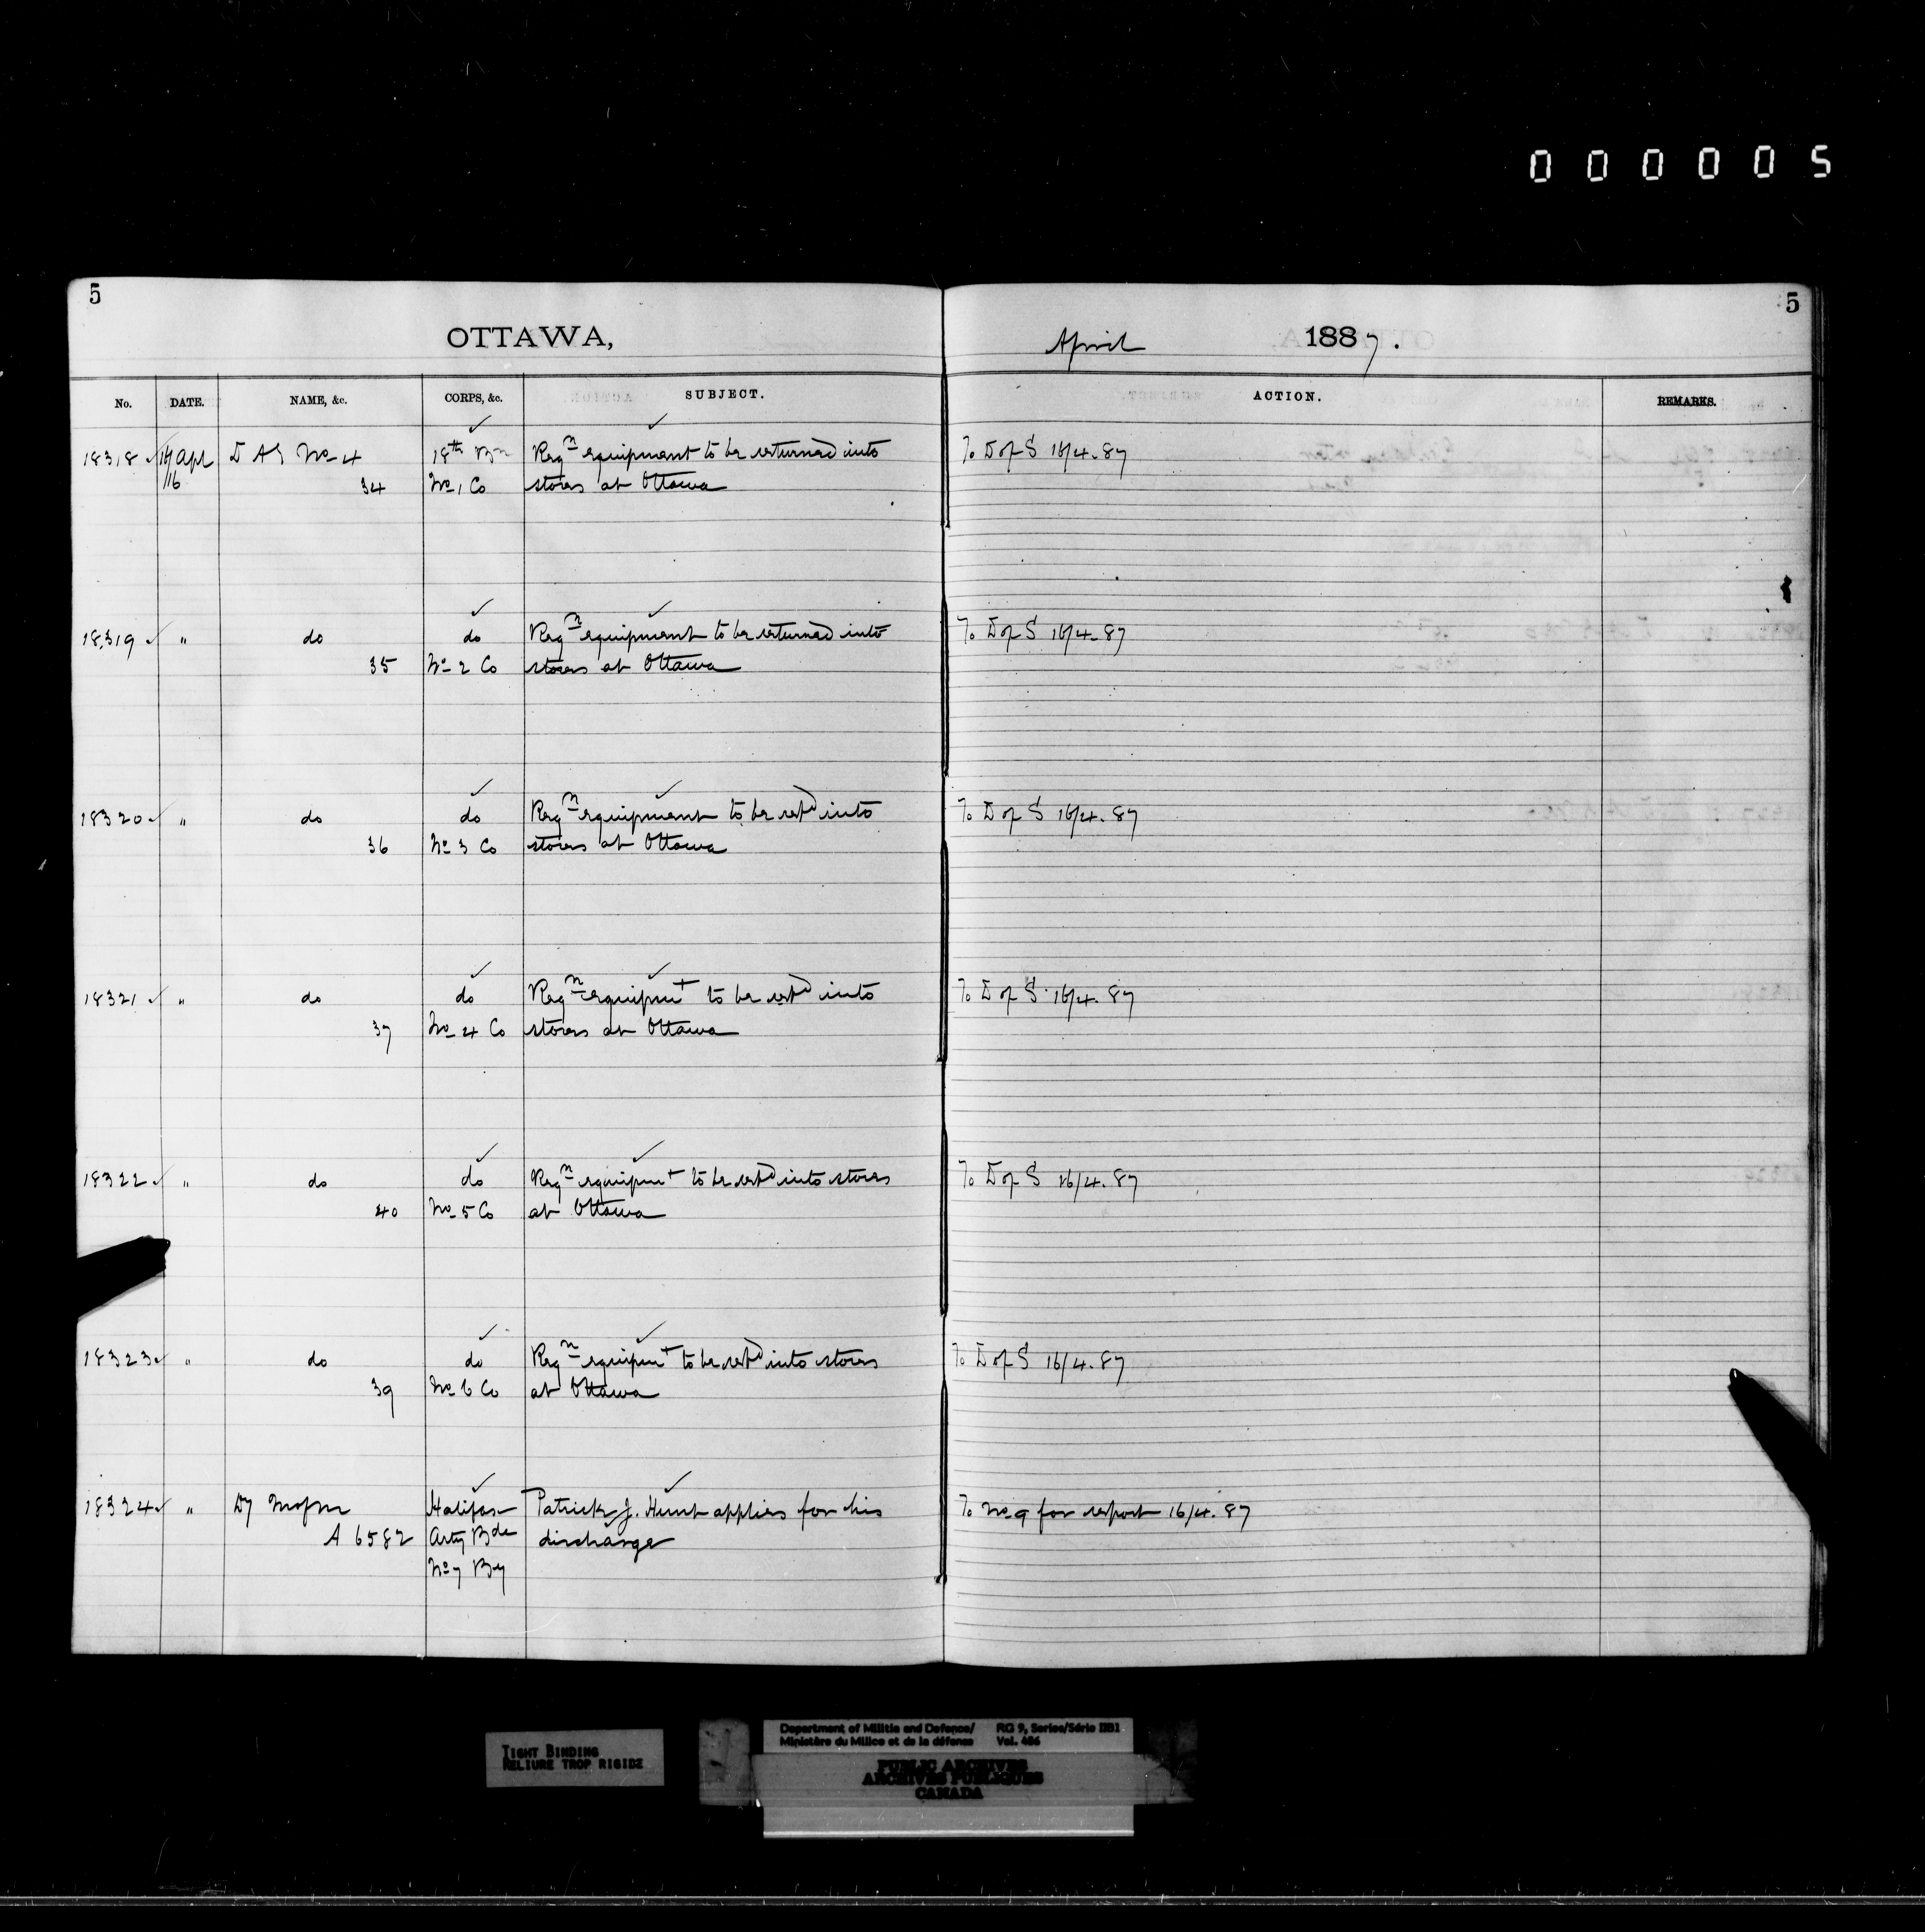 000005
5
5
OTTAWA,
April 1887.
No. DATE. NAME, &c. CORPS, &c. SUBJECT. ACTION. REMARKS.
18318 Apl D A G No 4 18th Bn Reqn equipment to be returned into To D of S 16/4.87
16 34 No 1 Co stores at Ottawa
18319 " do do Reqn equipment to be returned into To D of S 16/4.87
35 No 2 Co stores at Ottawa
18320 " do do Reqn equipment to be retd into To D of S 16/4.87
36 No 3 Co stores at Ottawa
18321 " do do Reqn equipmt to be retd into To D of S 16/4.87
37 No 4 Co stores at Ottawa
18322 " do do Reqn equipmt to be retd into stores To D of S 16/4.87
40 No 5 Co at Ottawa
18323 " do do Reqn equipmt to be retd into stores To D of S 16/4.87
39 No 6 Co at Ottawa
18324 " Dy Halifax Patrick J. Hunt applies for his To No 9 for report 16/4.87
A 6582 Arty Bde discharge
No 7 By
TIGHT BINDING
RELIURE TROP RIGIDE
Department of Militia and Defence/ RG 9, Series/Série IIB1
Ministère du Milice et de la défense Vol. 406
PUBLIC ARCHIVES
ARCHIVES PUBLIQUES
CANADA